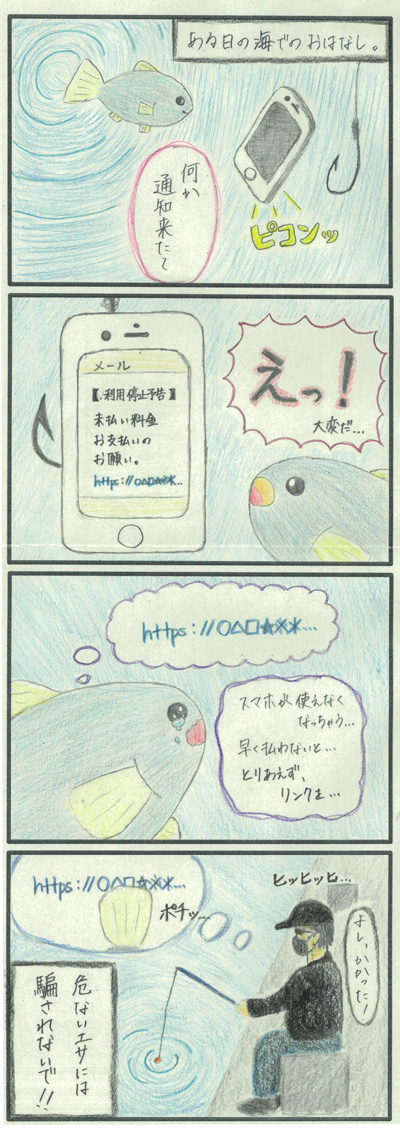 ある日の海でのおはなし。
何か
通知来たて
ピコンッ
メール
【.利用停止予告】
未払い料金
お支払いの
お願い。
https://○△□☆※*...
えっ!
大変だ...
https://○△□☆※*...
スマホが使えなく
なっちゃう...
早く払わないと...
とりあえず、
リンクを...
https://○△□☆※*...
ポチッ...
ヒッヒッヒ...
よし、かかった!
危ないエサには
騙されないで!!